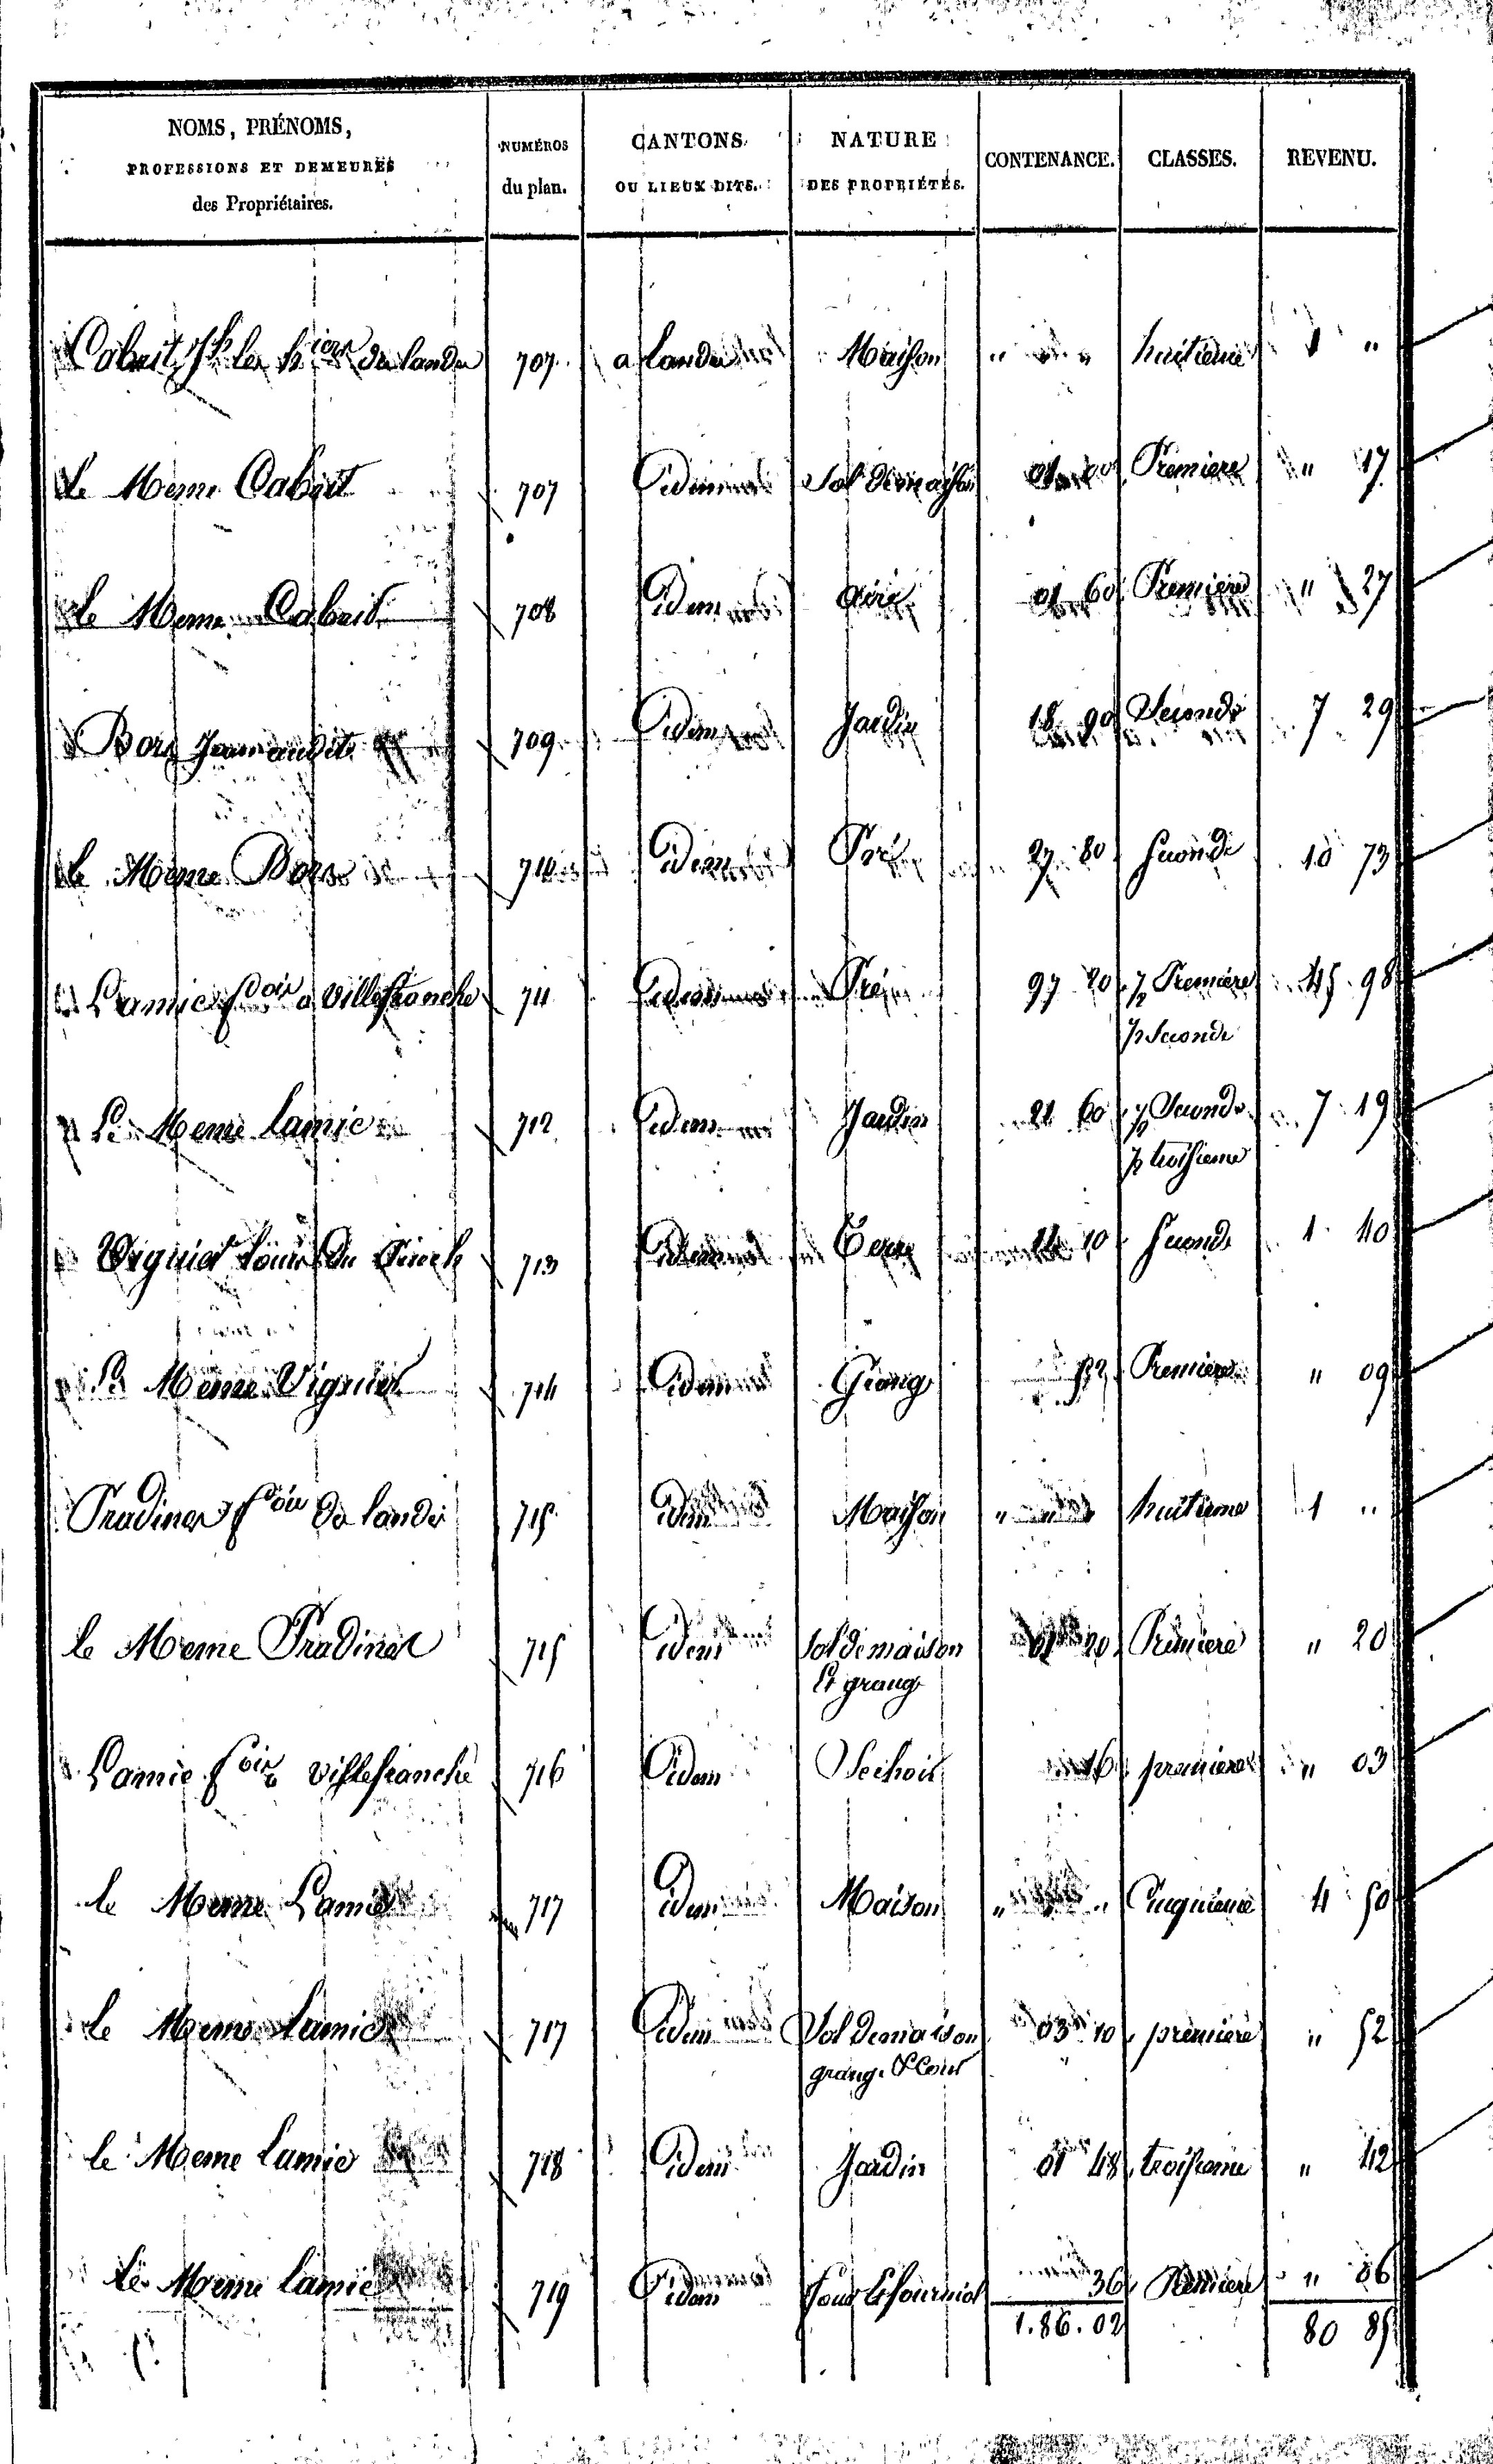 NOMS, PRÉNOMS,
PROFESSIONS ET DEMEURES
des Propriétaires.
NUMÉROS
du plan.
CANTONS
OU LIEUX DITS.
NATURE
DES PROPRIÉTÉS.
CONTENANCE.
CLASSES.
REVENU.
Cabrit Jh les h iers de landes 707 a landes Maison " " " huitieme 1 "
le Meme Cabrit 707 idem Sol de maison 01 00 Premiere " 17
le Meme Cabrit 708 idem aire 01 60 Premiere " 27
Bors Jean audit 709 idem Jardin 18 90 Seconde 7 29
le Meme Bors 710 idem Pré 27 80 seconde 10 73
Lamic fcois a Villefranche 711 idem Pré 97 20 1/2 Premiere 45 98
1/2 Seconde
Le Meme Lamic 712 idem Jardin 21 60 1/2 Seconde 7 19
1/2 troisieme
Viguié Louis du 713 idem Terre 11 10 seconde 1 40
Le Meme Viguié 714 idem Grange 52 Premiere " 09
Pradines fcois de landes 715 idem Maison " " " huitieme 1 "
le Meme Pradines 715 idem sol de maison 01 20 Premiere " 20
Et grange
Lamic fcois a villefranche 716 idem Sechoir 16 premiere " 03
le Meme Lamic 717 idem Maison " " " Cinquieme 4 50
le Meme Lamic 717 idem Sol de maison 03 10 premiere " 52
grange & Cour
le Meme Lamic 718 idem Jardin 01 48 troisieme " 42
Le Meme Lamic 719 idem four & fournial 36 Premiere " 06
1.86.02 80 85